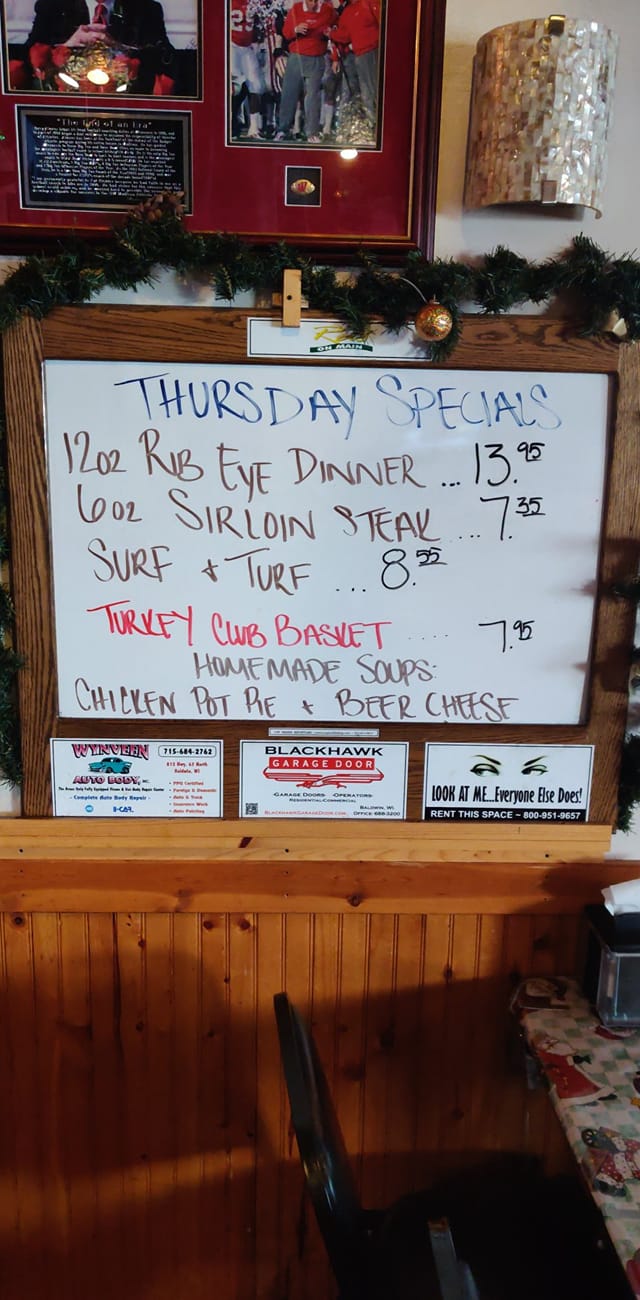 "The End of an Era"
ON MAIN
THURSDAY SPECIALS
12oz RIB EYE DINNER ... 13.95
6oz SIRLOIN STEAK ... 7.35
SURF & TURF ... 8.55
TURKEY CLUB BASKET .... 7.95
HOMEMADE SOUPS:
CHICKEN POT PIE & BEER CHEESE
WYNVEEN
AUTO BODY, INC.
715-684-2762
812 Hwy. 63 North
Baldwin, WI
• PPG Certified
• Foreign & Domestic
• Auto & Truck
• Insurance Work
• Auto Painting
The Areas Only Fully Equipped Frame & Uni-Body Repair Center
- Complete Auto Body Repair -
I-CAR
BLACKHAWK
GARAGE DOOR
•GARAGE DOORS •OPERATORS•
RESIDENTIAL•COMMERCIAL
BALDWIN, WI.
BLACKHAWKGARAGEDOOR.COM
OFFICE: 688-3200
LOOK AT ME...Everyone Else Does!
RENT THIS SPACE ~ 800-951-9657